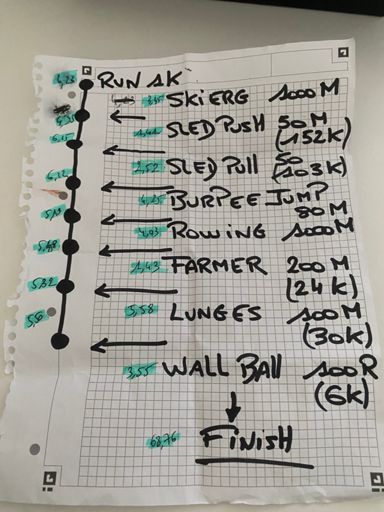 RUN 1K
SKiERG 1000M
SLED PUSH 50M
(152K)
SLED Pull 50
(103K)
6,22
BURPEE JUMP
80M
ROWING 1000M
5,48
1,43 FARMER 200M
(24K)
5,32
5,58 LUNGES 100M
(30K)
5,6
3,55 WALL BAll 100R
(6K)
68,76 FiNiSH